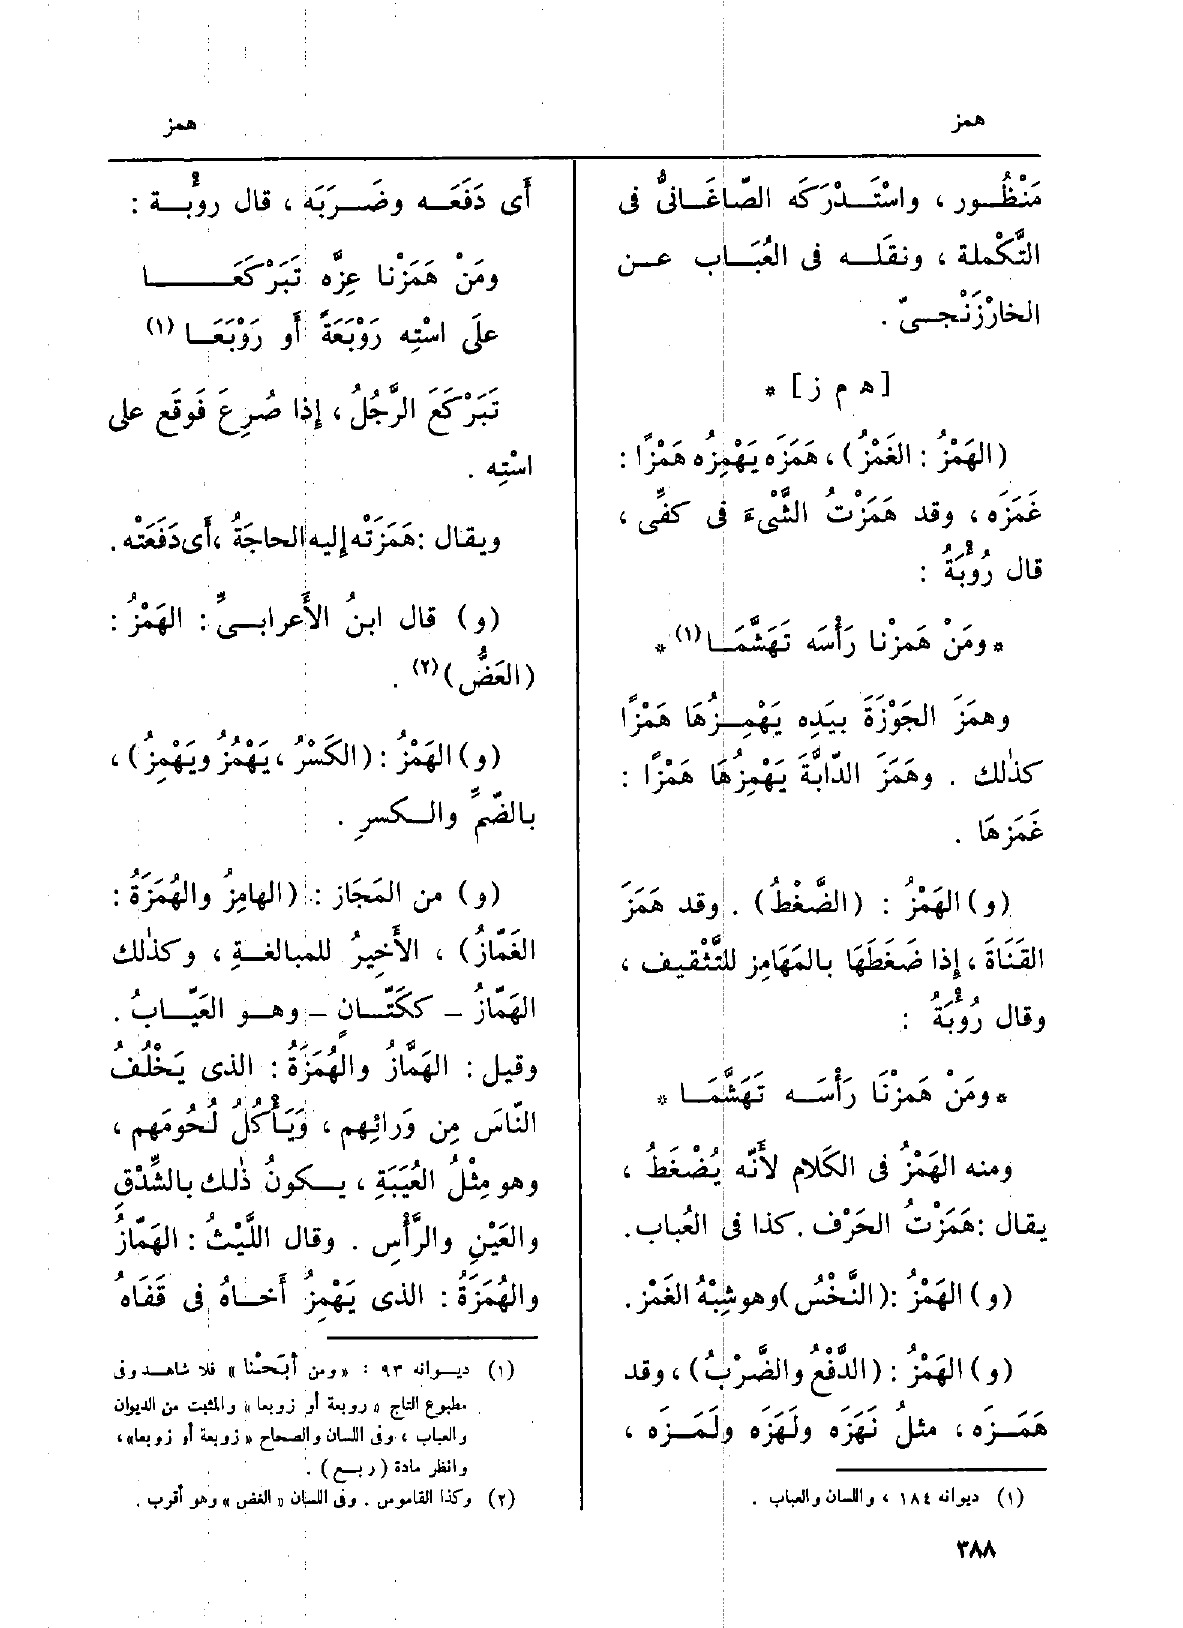 همز
همز
مَنْظُــور ، واسْتَــدْرَكه الصّاغَــانىُّ فى
التَّكْملة ، ونقَلــه فى العُبَــاب عــن
الخارْزَنْجــىّ .
[ ه م ز ] *
(الهَمْزُ : الغَمْزُ) ، هَمَزَه يَهْمِزُه هَمْزًا :
غَمَزَه ، وقد هَمَزْتُ الشَّىءَ فى كفِّى ،
قال رُؤْبَةُ :
* ومَنْ هَمزْنا رَأْسَه تَهَشَّمَــا (١) *
وهمَزَ الجَوْزَةَ بيَدِه يَهْمِــزُهَا هَمْزًا
كذٰلك . وهَمَزَ الدّابَّةَ يَهْمِزُهَا هَمْزًا :
غَمَزهَا .
(و) الهَمْزُ : (الضَّغْطُ) . وقد هَمَزَ
القَنَاةَ ، إذا ضَغَطَهَا بالمَهَامِز للتَّثْقيف ،
وقال رُؤْبَةُ :
* ومَنْ هَمزْنَا رَأْسَــه تَهَشَّمَــا *
ومنه الهَمْزُ فى الكَلام لأَنَّه يُضْغَطُ ،
يقال : هَمَزْتُ الحَرْف . كذا فى العُباب .
(و) الهَمْزُ : (النَّخْسُ) وهو شِبْهُ الغَمْز .
(و) الهَمْزُ : (الدَّفْعُ والضَّرْبُ) ، وقد
هَمَــزَه ، مثلُ نَهَزَه ولَهَزَه ولَمَــزَه ،
(١) ديوانه ١٨٤ ، واللسان والعباب .
أَى دَفَعَــه وضَــرَبَه ، قال رؤبــة :
ومَنْ هَمَزْنا عِزَّه تَبَرْكَعَــــا
علَى اسْتِه رَوْبَعَةً أَو رَوْبَعَــا (١)
تَبَرْكَعَ الرَّجُلُ ، إذا صُرِعَ فَوقَع على
اسْتِه .
ويقال : هَمَزَتْه إليه الحاجَةُ ، أَى دَفَعَتْه .
(و) قال ابنُ الأَعرابــىِّ : الهَمْزُ :
(العَضُّ) (٢) .
(و) الهَمْزُ : (الكَسْرُ ، يَهْمُزُ ويَهْمِزُ) ،
بالضّمِّ والــكسرِ .
(و) من المَجَاز : (الهامِزُ والهُمَزَةُ :
الغَمّازُ) ، الأَخِيرُ للمبالغــةِ ، وكذٰلك
الهَمّازُ – ككَتّــانٍ – وهــو العَيّــابُ .
وقيل : الهَمَّازُ والهُمَزَةُ : الذى يَخْلُفُ
النّاسَ مِن وَرائِهم ، وَيَأْكُلُ لُحُومَهم ،
وهو مِثْلُ العُيَبَةِ ، يــكونُ ذٰلك بالشِّدْقِ
والعَيْنِ والرَّأْسِ . وقال اللَّيْثُ : الهَمّازُ
والهُمَزَةُ : الذى يَهْمِزُ أَخــاهُ فى قَفَاهُ
(١) ديــوانه ٩٣ : «ومن أبَحْنا» فلا شاهــد وفى
مطبوع التاج «روبعة أو زوبعا» والمثبت من الديوان
والعباب ، وفى اللسان والصحاح «زوبعة أو زوبعا» ،
وانظر مادة (ربــع) .
(٢) وكذا القاموس . وفى اللسان «الغض» وهو أقرب .
٣٨٨